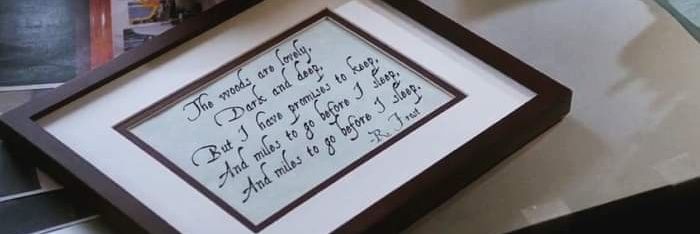 The woods are lovely,
Dark and deep,
But I have promises to keep,
And miles to go before I sleep,
And miles to go before I sleep.
-R. Frost